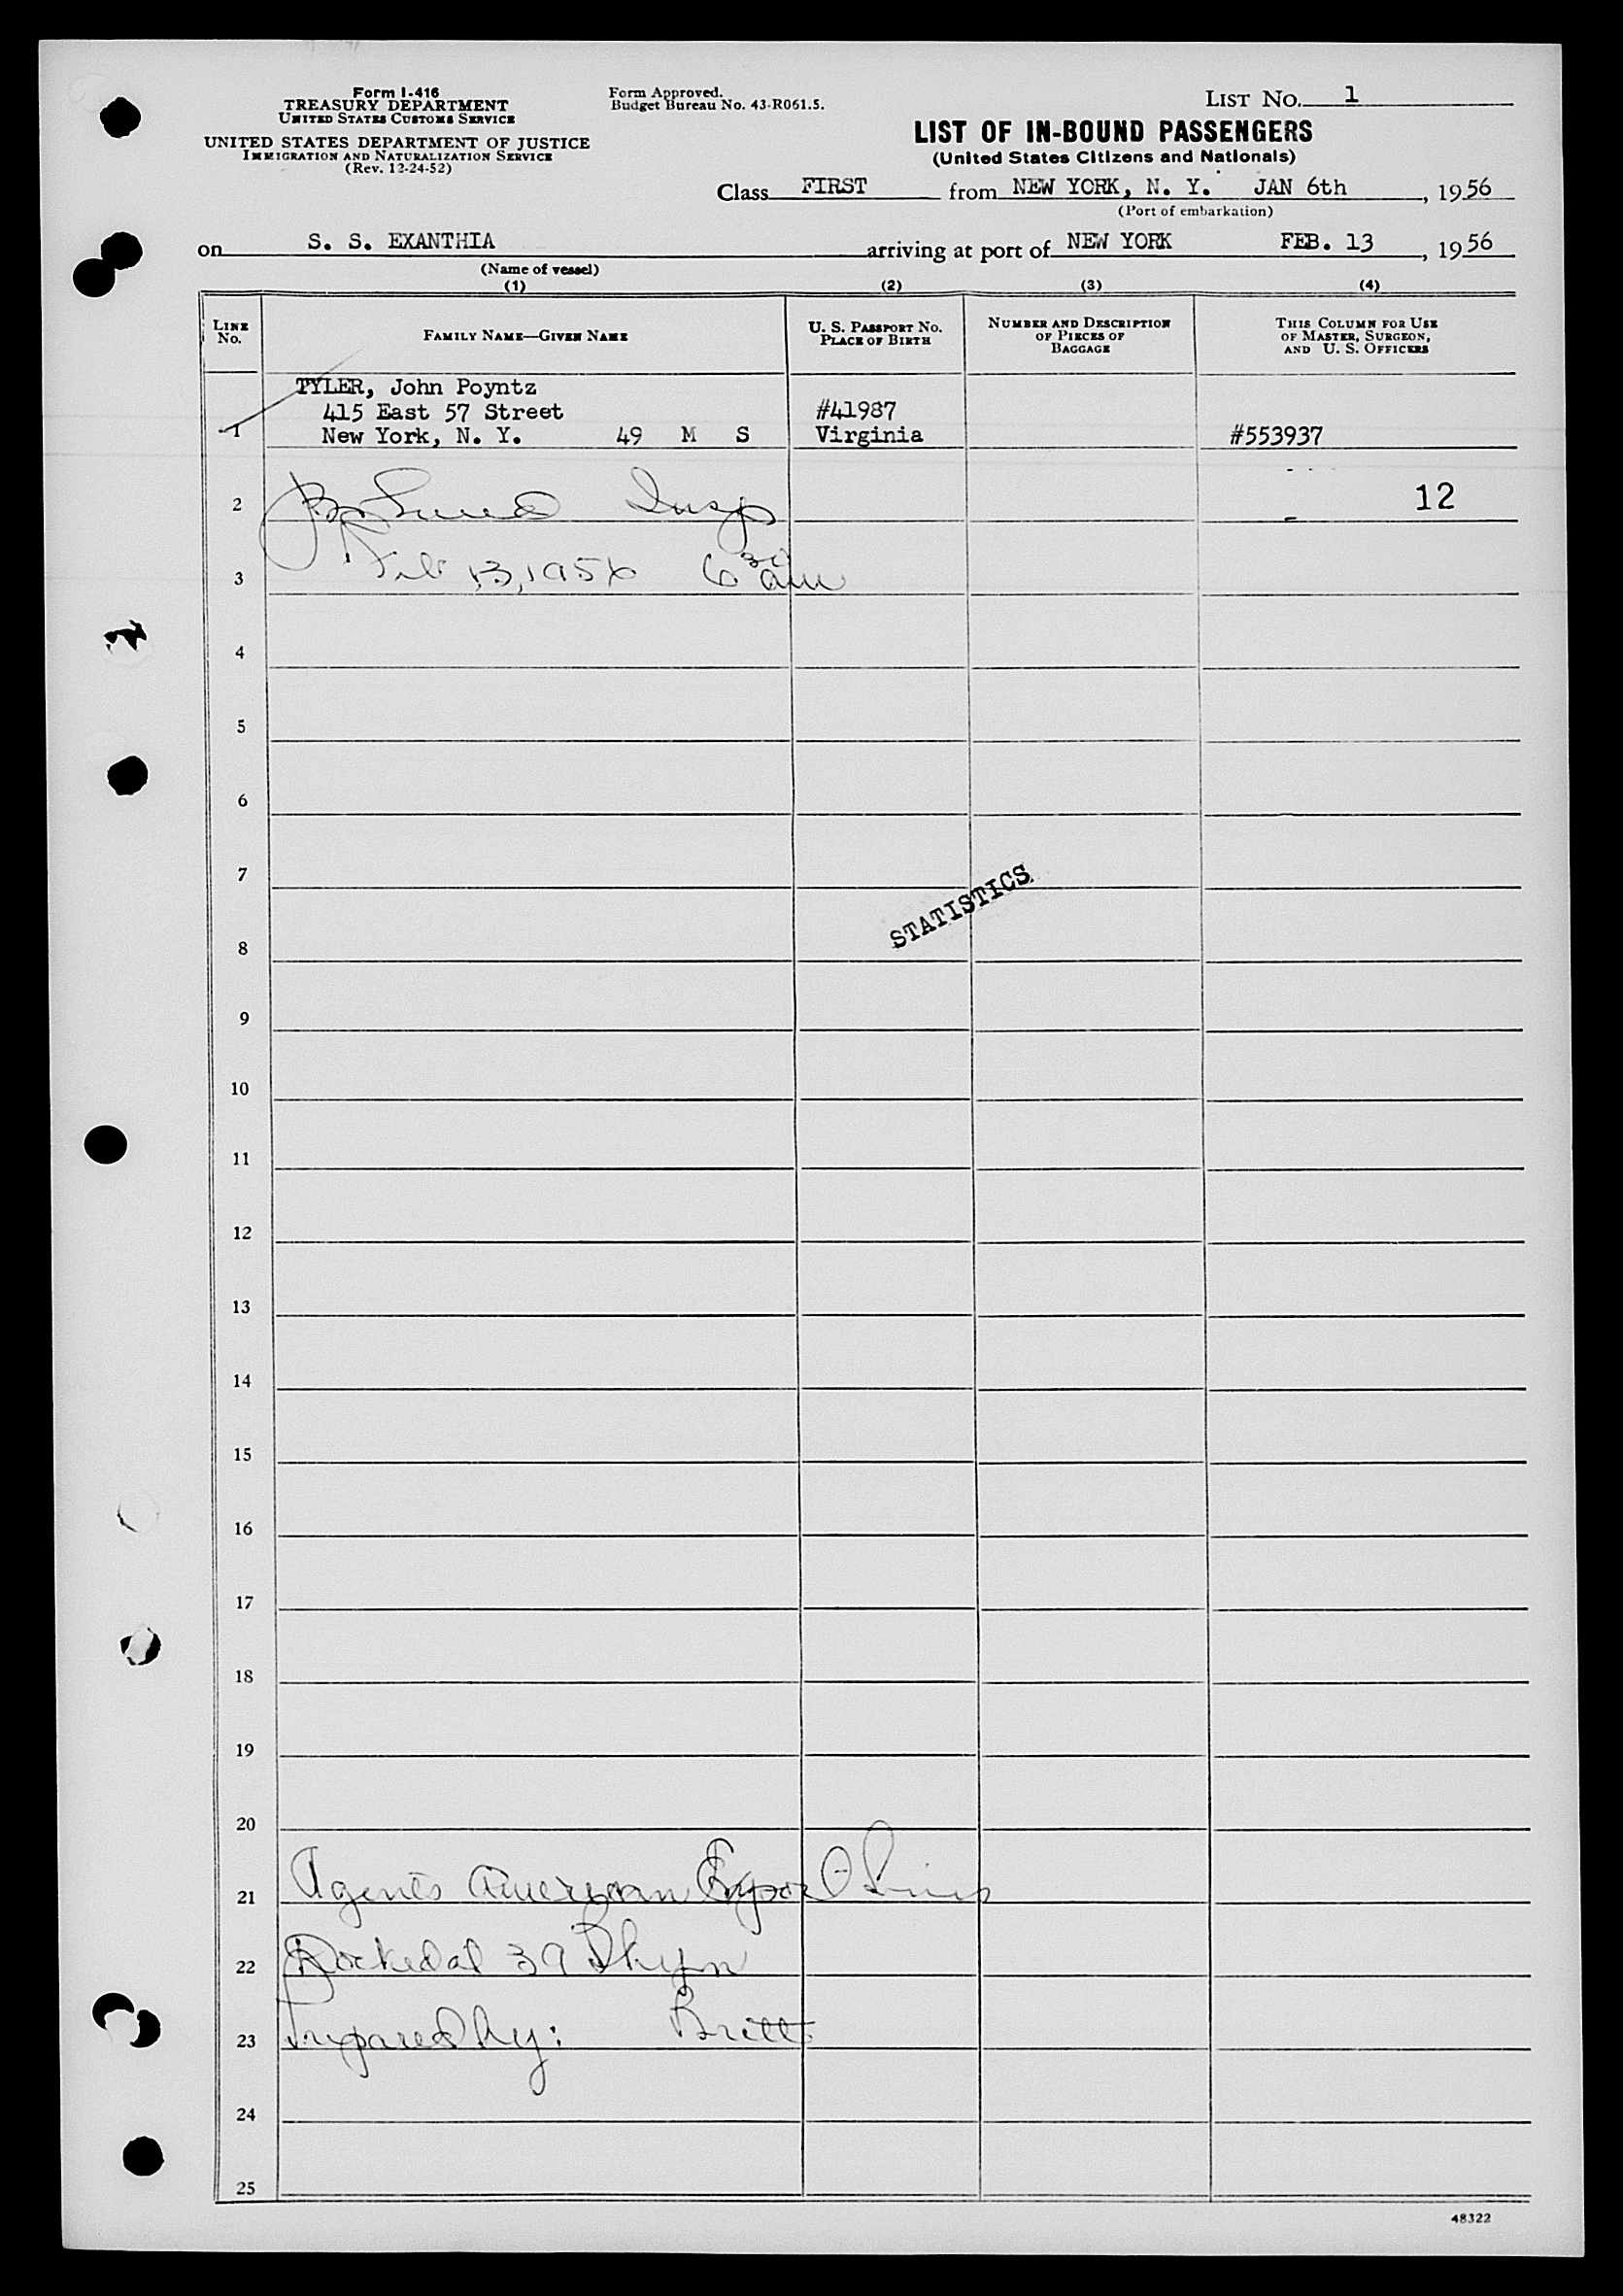 Form I-416
TREASURY DEPARTMENT
UNITED STATES CUSTOMS SERVICE
UNITED STATES DEPARTMENT OF JUSTICE
IMMIGRATION AND NATURALIZATION SERVICE
(Rev. 12-24-52)
Form Approved.
Budget Bureau No. 43-R061.5.
LIST NO. 1
LIST OF IN-BOUND PASSENGERS
(United States Citizens and Nationals)
Class FIRST from NEW YORK, N. Y. JAN 6th, 1956
(Port of embarkation)
on S. S. EXANTHIA arriving at port of NEW YORK FEB. 13, 1956
(Name of vessel)
(1) (2) (3) (4)
LINE No. FAMILY NAME—GIVEN NAME U. S. PASSPORT NO. PLACE OF BIRTH NUMBER AND DESCRIPTION OF PIECES OF BAGGAGE THIS COLUMN FOR USE OF MASTER, SURGEON, AND U. S. OFFICERS
TYLER, John Poyntz
415 East 57 Street #41987
1 New York, N. Y. 49 M S Virginia #553937
2 Insp 12
3 Feb 13, 1956 6 30 am
4
5
6
7
STATISTICS
8
9
10
11
12
13
14
15
16
17
18
19
20
21 Agents American Export Lines
22 Docked at 39 Bklyn
23 Prepared by: Britt
24
25
48322